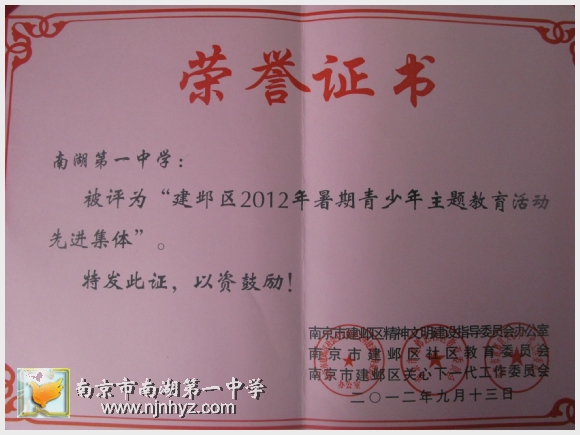 荣誉证书
南湖第一中学：
被评为“建邺区2012年暑期青少年主题教育活动
先进集体”。
特发此证，以资鼓励！
南京市建邺区精神文明建设指导委员会办公室
南京市建邺区社区教育委员会
南京市建邺区关心下一代工作委员会
二〇一二年九月十三日
南京市南湖第一中学
www.njnhyz.com